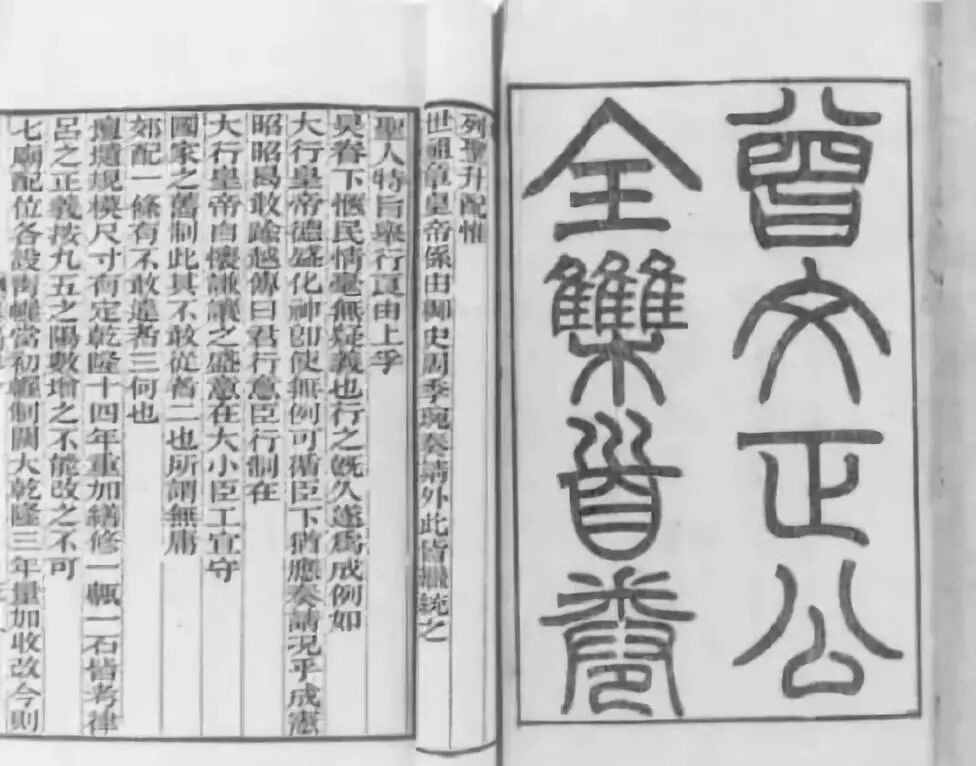 曾文正公
全集首卷
列聖升配惟
世祖章皇帝係由御史周季琬奏請外此皆繼統之
聖人特旨舉行良由上孚
昊眷下愜民情毫無疑義也行之既久遂爲成例如
大行皇帝德盛化神即使無例可循臣下猶應奏請況乎成憲
昭昭曷敢踰越傳曰君行意臣行制在
大行皇帝自懷謙讓之盛意在大小臣工宜守
國家之舊制此其不敢從者二也所謂無庸
郊配一條有不敢違者三何也
壇壝規模尺寸有定乾隆十四年重加繕修一甎一石皆考律
呂之正義按九五之陽數增之不能改之不可
七廟配位各設青幄當初幄制闊大乾隆三年量加收改今則